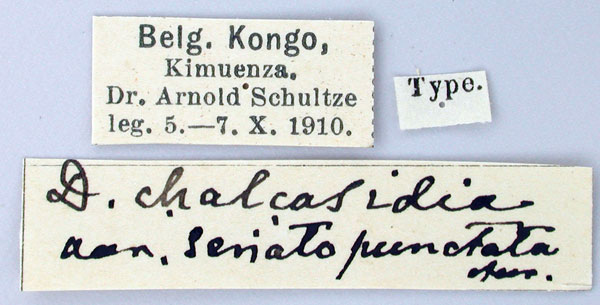 Belg. Kongo,
Kimuenza.
Dr. Arnold Schultze
leg. 5.—7. X. 1910.
Type.
D. chalcasidia
seriatopunctata
Aur.